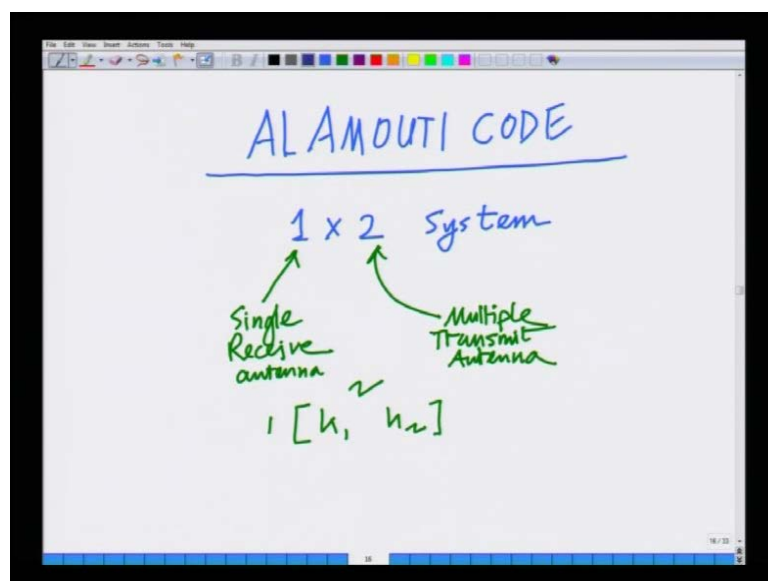 File Edit View Insert Actions Tools Help
ALAMOUTI CODE
1 x 2 System
Single Receive antenna
Multiple Transmit Antenna
2
1 [h₁ h₂]
16/33
16